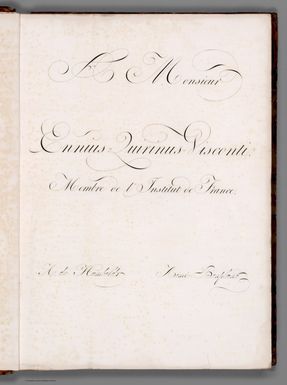 A Monsieur
Ennius Quirinus Visconti,
Membre de l'Institut de France.
A. de Humboldt Aimé Bonpland